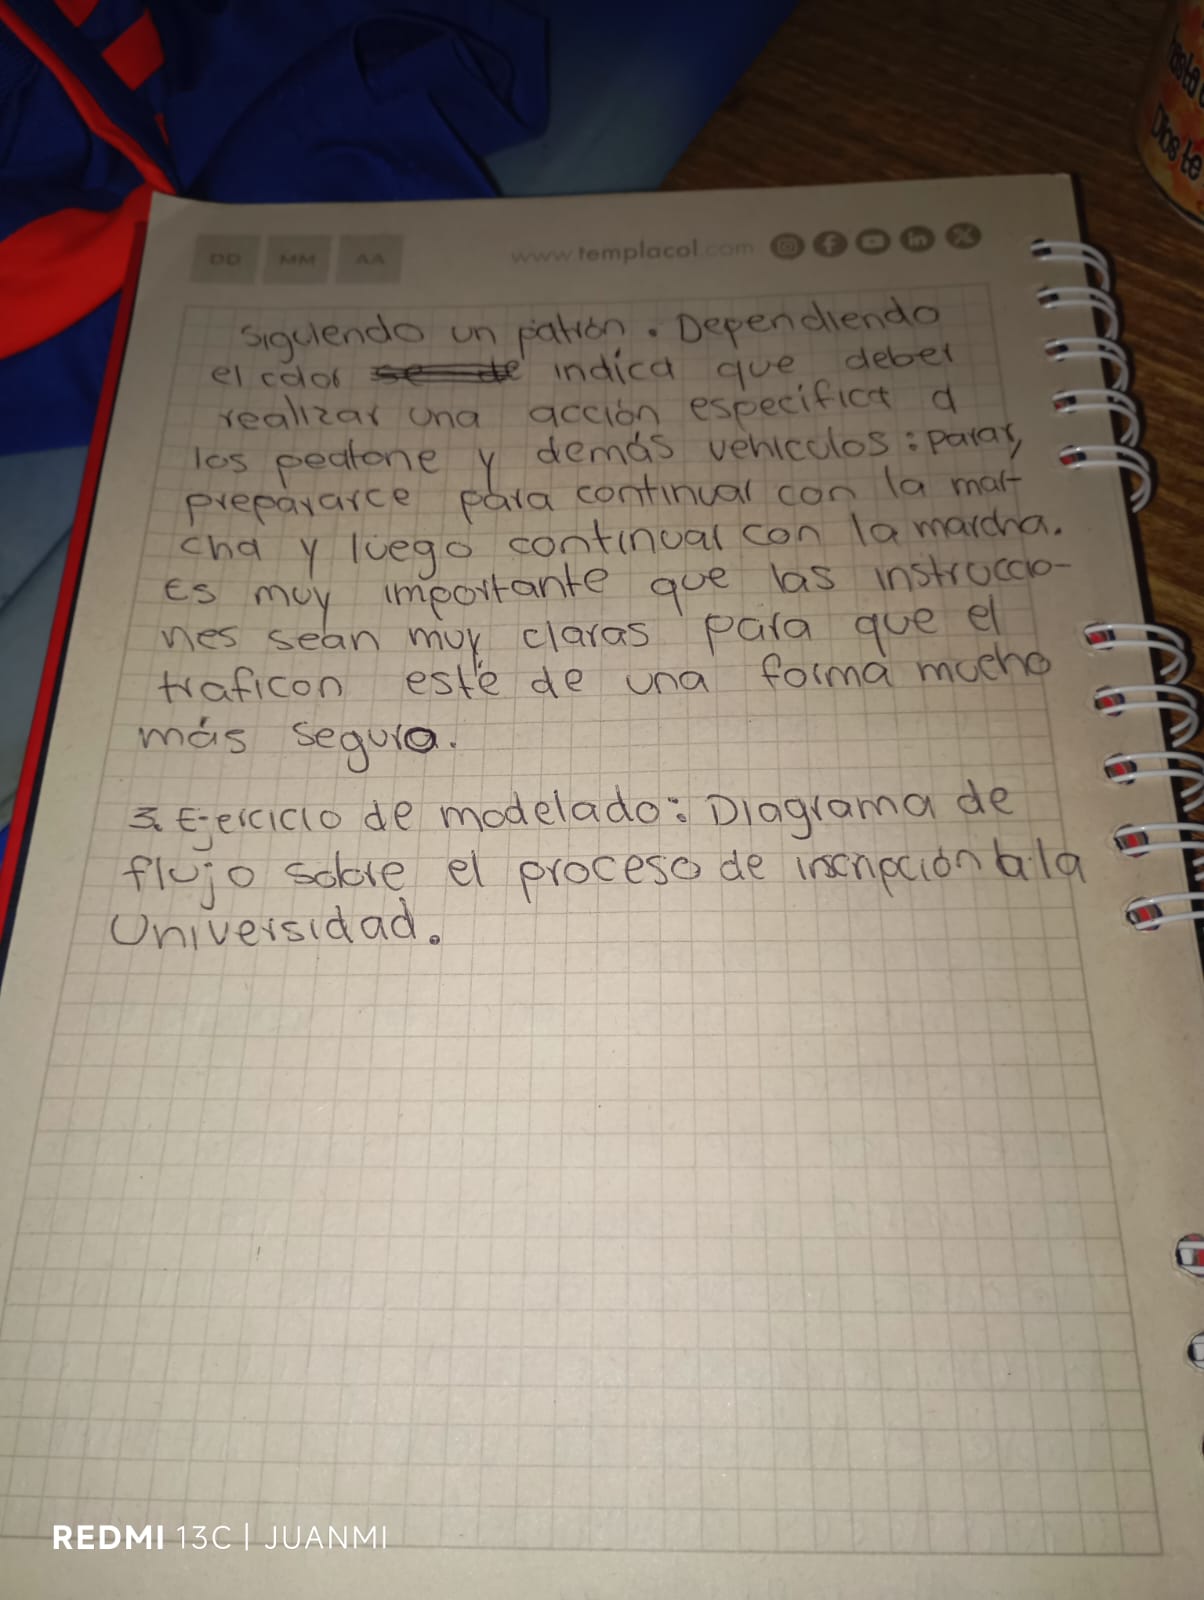 DD MM AA www.templacol.com
siguiendo un patrón. Dependiendo
el color indica que deber
realizar una acción específica a
los peatone y demás vehiculos: parar,
prepararce para continuar con la mar-
cha y luego continuar con la marcha.
Es muy importante que las instruccio-
nes sean muy claras para que el
traficon esté de una forma mucho
más segura.
3. Ejercicio de modelado: Diagrama de
flujo sobre el proceso de inscripción a la
Universidad.
Dios te
REDMI 13C | JUANMI